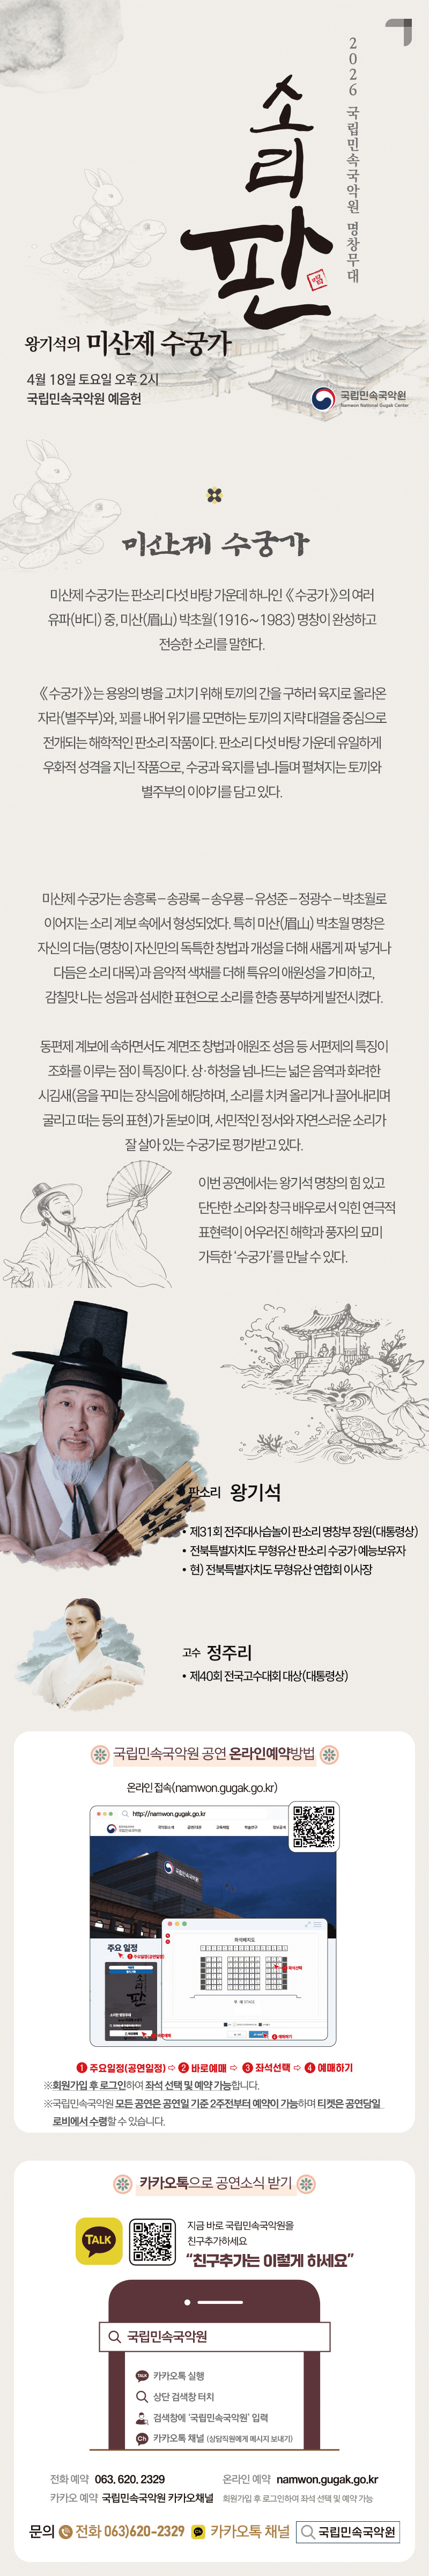 2026 국립민속국악원 명창무대
소리판
왕기석의 미산제 수궁가
4월 18일 토요일 오후 2시
국립민속국악원 예음헌
국립민속국악원
Namwon National Gugak Center
미산제 수궁가
미산제 수궁가는 판소리 다섯 바탕 가운데 하나인 《수궁가》의 여러
유파(바디) 중, 미산(眉山) 박초월(1916~1983) 명창이 완성하고
전승한 소리를 말한다.
《수궁가》는 용왕의 병을 고치기 위해 토끼의 간을 구하러 육지로 올라온
자라(별주부)와, 꾀를 내어 위기를 모면하는 토끼의 지략 대결을 중심으로
전개되는 해학적인 판소리 작품이다. 판소리 다섯 바탕 가운데 유일하게
우화적 성격을 지닌 작품으로, 수궁과 육지를 넘나들며 펼쳐지는 토끼와
별주부의 이야기를 담고 있다.
미산제 수궁가는 송흥록–송광록–송우룡–유성준–정광수–박초월로
이어지는 소리 계보 속에서 형성되었다. 특히 미산(眉山) 박초월 명창은
자신의 더늠(명창이 자신만의 독특한 창법과 개성을 더해 새롭게 짜 넣거나
다듬은 소리 대목)과 음악적 색채를 더해 특유의 애원성을 가미하고,
감칠맛 나는 성음과 섬세한 표현으로 소리를 한층 풍부하게 발전시켰다.
동편제 계보에 속하면서도 계면조 창법과 애원조 성음 등 서편제의 특징이
조화를 이루는 점이 특징이다. 상·하청을 넘나드는 넓은 음역과 화려한
시김새(음을 꾸미는 장식음에 해당하며, 소리를 치켜 올리거나 끌어내리며
굴리고 떠는 등의 표현)가 돋보이며, 서민적인 정서와 자연스러운 소리가
잘 살아 있는 수궁가로 평가받고 있다.
이번 공연에서는 왕기석 명창의 힘 있고
단단한 소리와 창극 배우로서 익힌 연극적
표현력이 어우러진 해학과 풍자의 묘미
가득한 ‘수궁가’를 만날 수 있다.
판소리 왕기석
• 제31회 전주대사습놀이 판소리 명창부 장원(대통령상)
• 전북특별자치도 무형유산 판소리 수궁가 예능보유자
• 현) 전북특별자치도 무형유산 연합회 이사장
고수 정주리
• 제40회 전국고수대회 대상(대통령상)
국립민속국악원 공연 온라인예약방법
온라인 접속(namwon.gugak.go.kr)
http://namwon.gugak.go.kr
국립민속국악원
주요 일정
좌석배치도
1 주요일정(공연일정) ⇨ 2 바로예매 ⇨ 3 좌석선택 ⇨ 4 예매하기
※회원가입 후 로그인하여 좌석 선택 및 예약 가능합니다.
※국립민속국악원 모든 공연은 공연일 기준 2주전부터 예약이 가능하며 티켓은 공연당일
로비에서 수령할 수 있습니다.
카카오톡으로 공연소식 받기
TALK
지금 바로 국립민속국악원을
친구추가하세요
“친구추가는 이렇게 하세요”
국립민속국악원
카카오톡 실행
상단 검색창 터치
검색창에 ‘국립민속국악원’ 입력
Ch 카카오톡 채널 (상담직원에게 메시지 보내기)
전화 예약 063. 620. 2329 온라인 예약 namwon.gugak.go.kr
카카오 예약 국립민속국악원 카카오채널 회원가입 후 로그인하여 좌석 선택 및 예약 가능
문의 전화 063)620-2329 카카오톡 채널 국립민속국악원